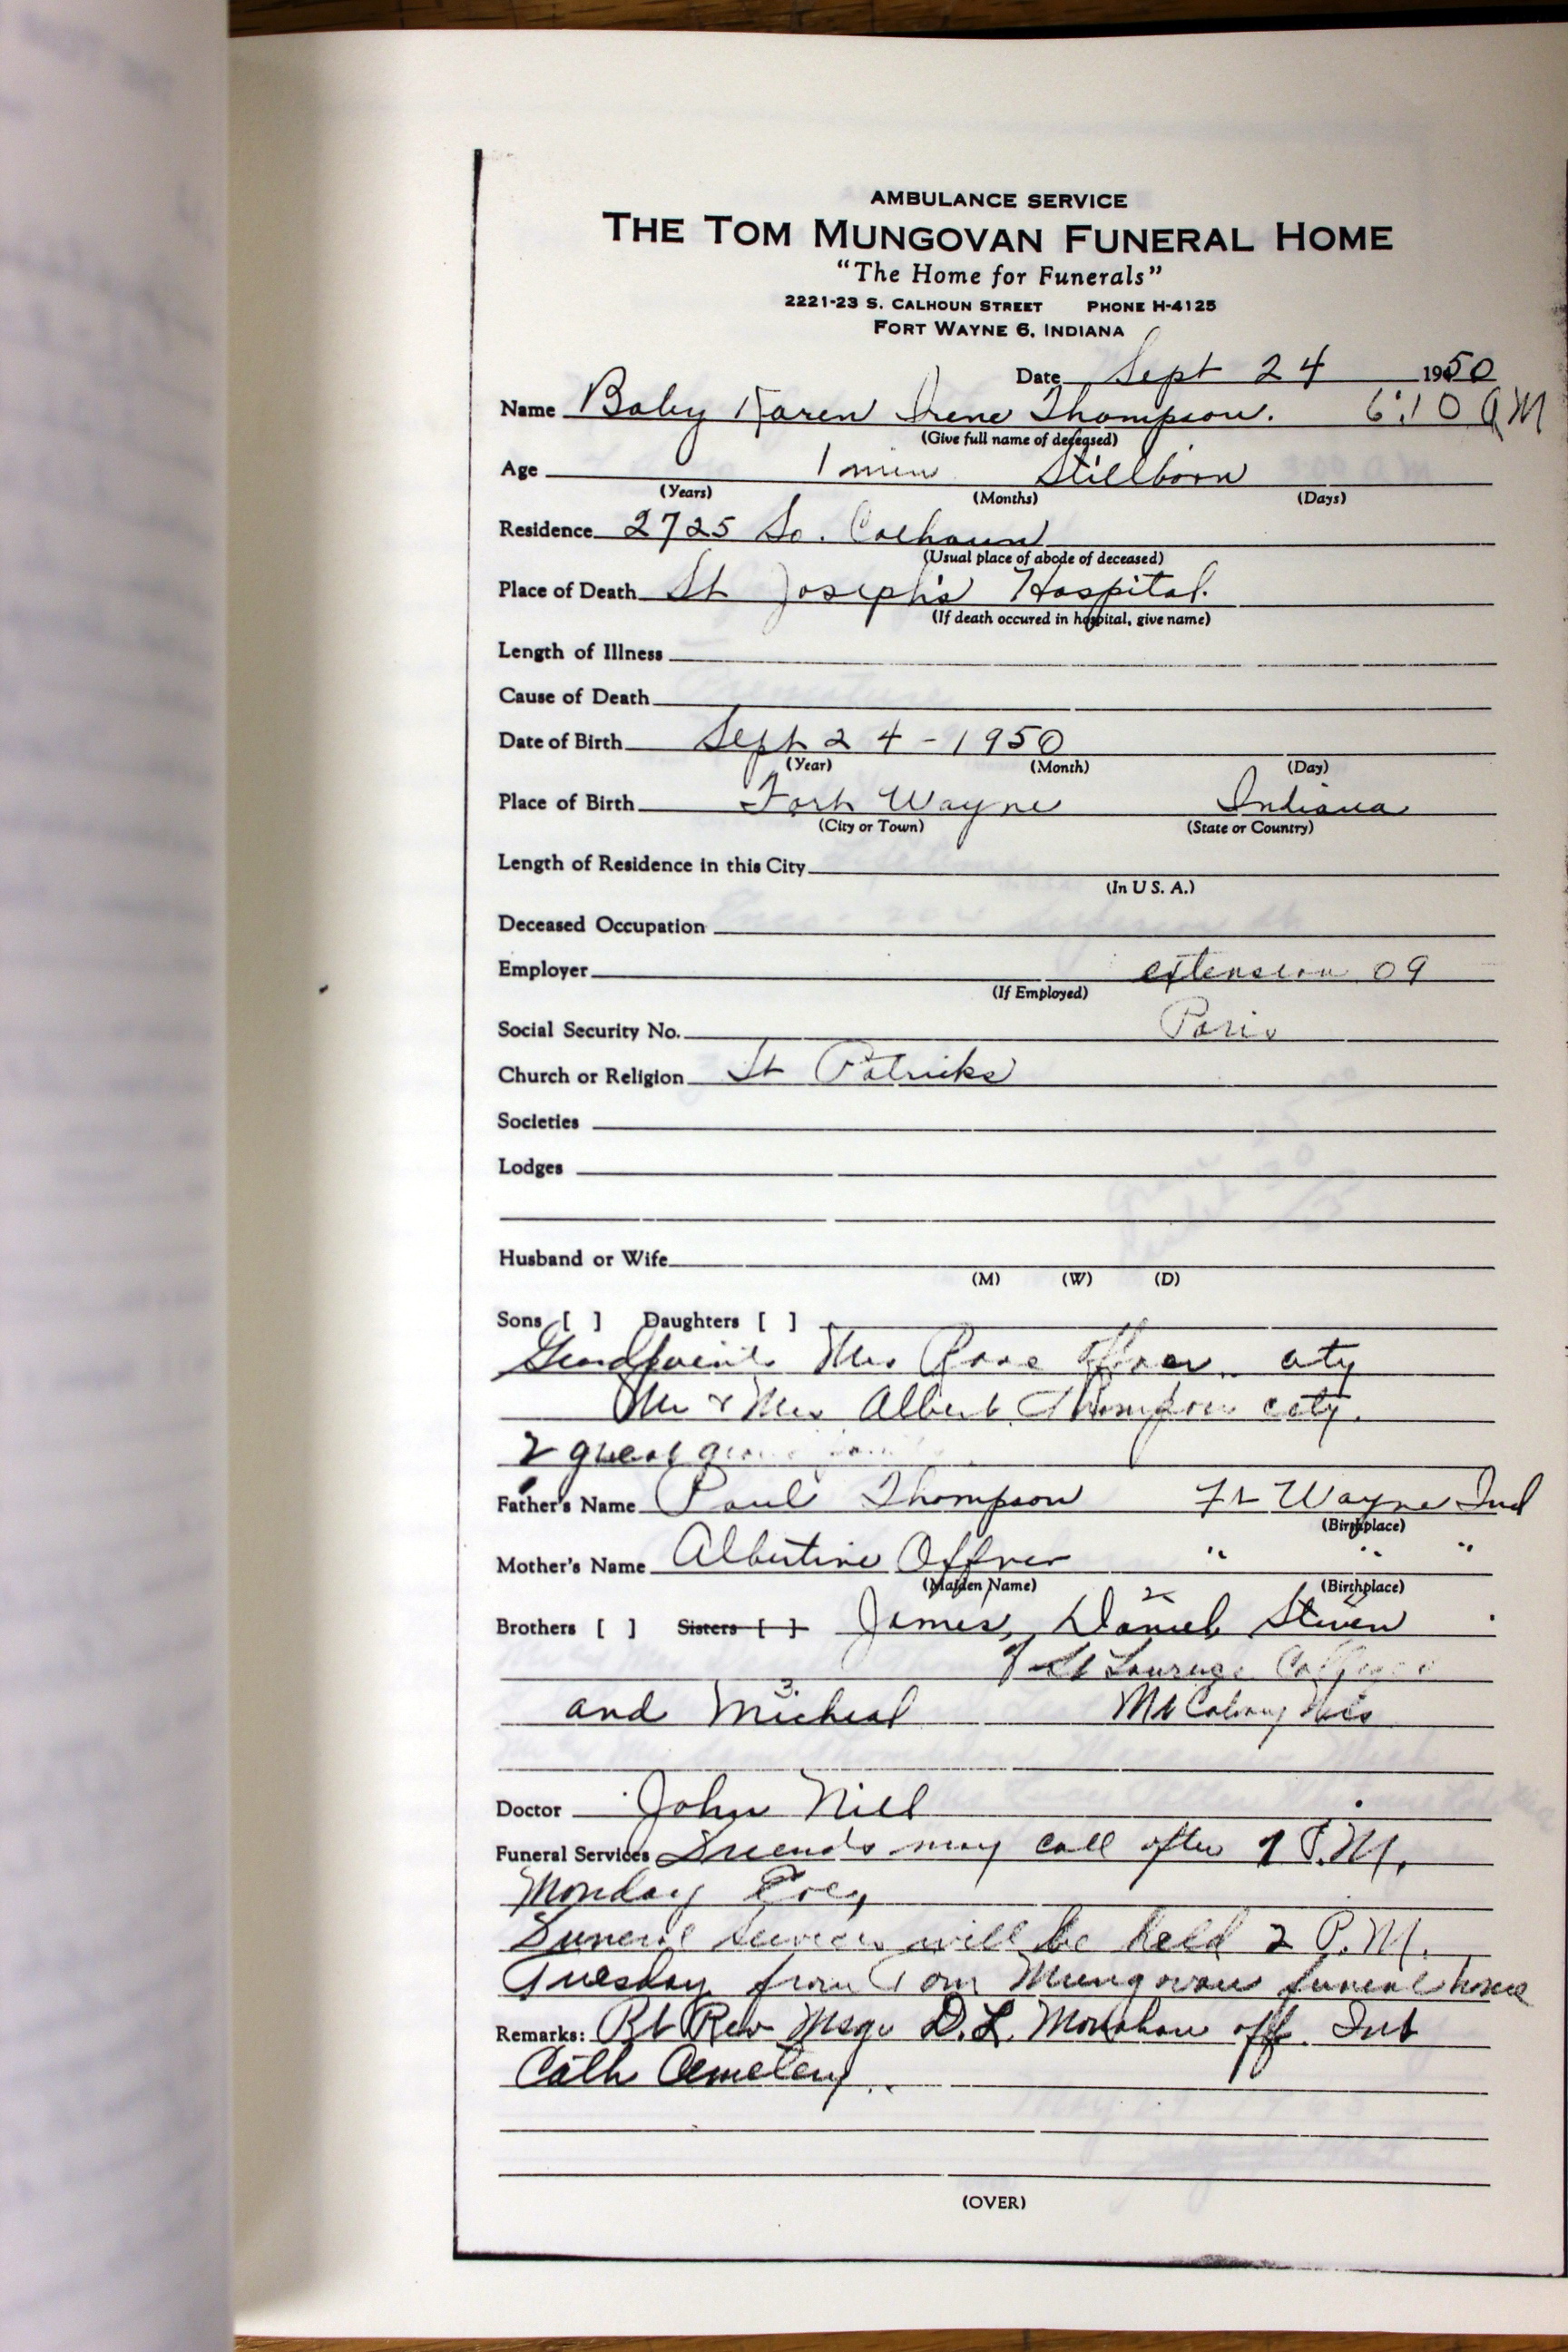 AMBULANCE SERVICE
THE TOM MUNGOVAN FUNERAL HOME
"The Home for Funerals"
2221-23 S. CALHOUN STREET PHONE H-4125
FORT WAYNE 6, INDIANA
Date Sept 24 1950
Name Baby Karen Irene Thompson. 6:10 AM
(Give full name of deceased)
Age 1 min Stillborn
(Years) (Months) (Days)
Residence 2725 So. Calhoun
(Usual place of abode of deceased)
Place of Death St Joseph's Hospital.
(If death occured in hospital, give name)
Length of Illness
Cause of Death
Date of Birth Sept 24-1950
(Year) (Month) (Day)
Place of Birth Fort Wayne Indiana
(City or Town) (State or Country)
Length of Residence in this City
(In U S. A.)
Deceased Occupation
Employer extension 09
(If Employed)
Social Security No. Paris
Church or Religion St Patricks
Societies
Lodges
Husband or Wife
(M) (W) (D)
Sons [ ] Daughters [ ]
Grandparents Mrs Rose Offner city
Mr & Mrs Albert Thompson city.
2 great
Father's Name Paul Thompson Ft Wayne Ind
(Birthplace)
Mother's Name Albertine Offner " " "
(Maiden Name) (Birthplace)
Brothers [ ] Sisters [ ] James, Daniel 2 Steven
of St Lawrence College
and Micheal 3 Mt Calvary Wis
Doctor John Nill
Funeral Services Friends may call after 7 P.M.
Monday Eve,
Funeral services will be held 2 P.M.
Tuesday from Tom Mungovan funeral home
Remarks: Rt Rev Msgr D.L. Monahan off. Int
Cath Cemetery.
(OVER)